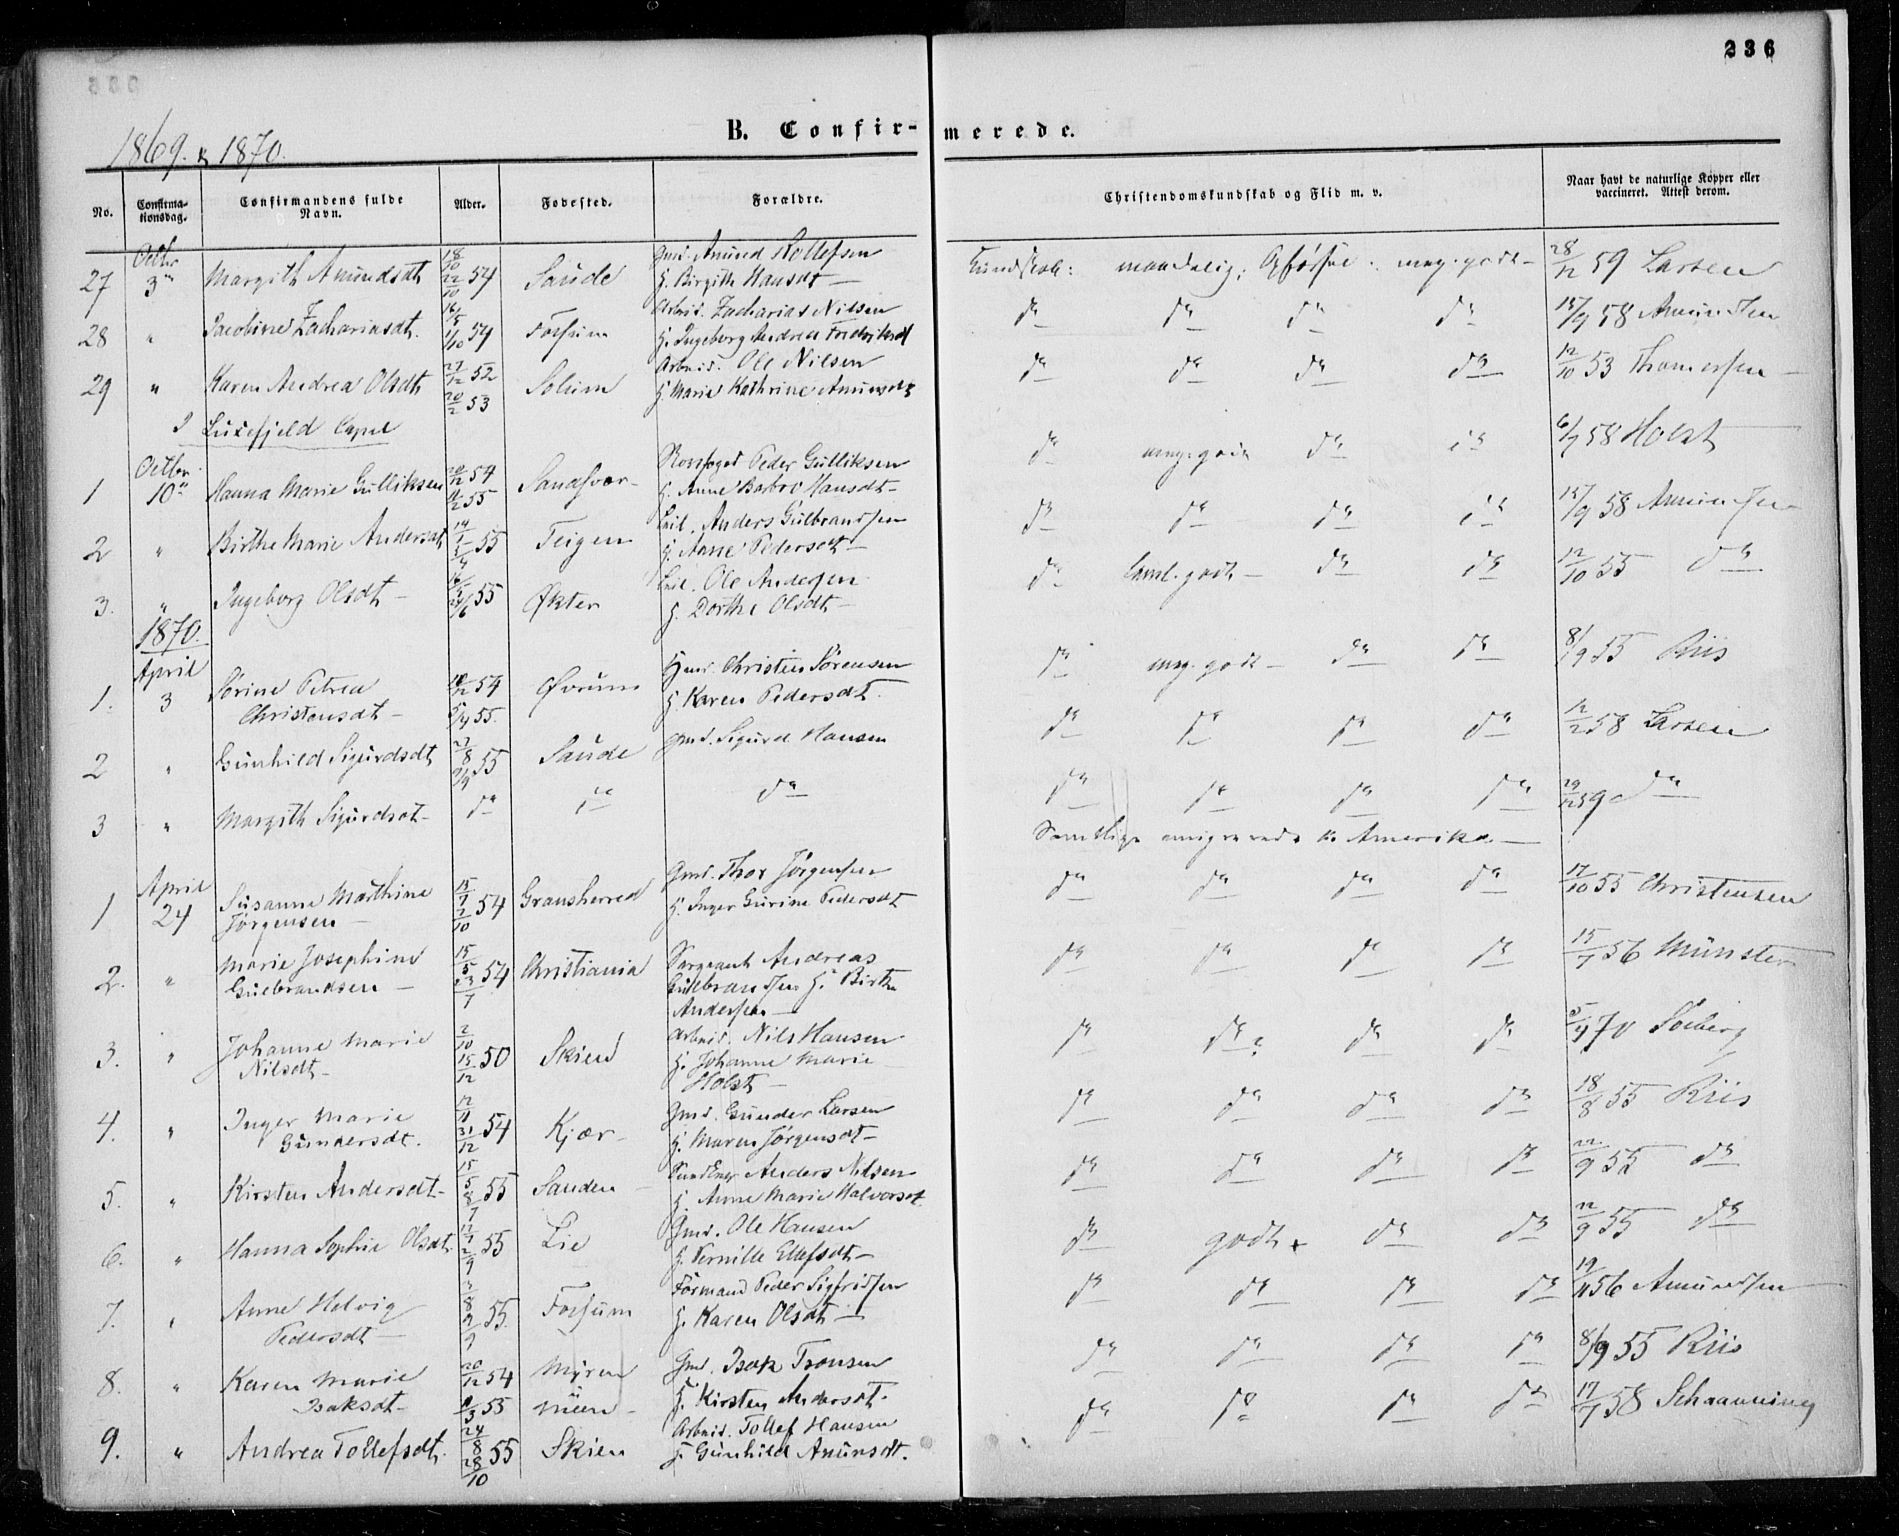 236
1869. & 1870.
B. Confir- merede.
No. Confirma-tionsdag. Confirmandens fulde Navn. Alder. Fødested. Forældre. Christendomskundskab og Flid m. v. Naar havt de naturlige Kopper eller vaccineret. Attest derom.
Octbr
27 3die Margith Amundsdt 18/10 22/10 54 Saude Gmd. Amund Rollefsen
H. Birgith Hansdt Kundskab: maadelig, Opførsel meg. godt 28/12 59 Larsen
28 " Jacobine Zachariasdt. 16/5 1/10 54 Fossum Arbeid. Zacharias Nilsen
H. Ingeborg Andrea Fredriksdt do do do do 15/9 58 Amundsen
29 " Karen Andrea Olsdt 27/12 52 20/2 53 Solum Arbeid. Ole Nilsen
H. Marie Kathrine Amundsdt do do do do 12/10 53 Thomesen
I Luxefjeld Capel
Octbr
1 10de Hanna Marie Gulliksen 20/12 54 11/2 55 Sandsvær Peder Gulliksen
H. Anne Barbro Hansdt do meg. godt do do 6/7 58 Holst
2 " Birthe Marie Andersdt 55 Teigen Leil. Anders Gulbrandsen
H. Anne Pedersdt do do do do 15/9 58 Amundsen
3. " Ingeborg Olsdt 55 Økter Leil. Ole Andersen
H. Dorthe Olsdt do teml. godt do do 12/10 55 do
1870.
April
1. 3 Sørine Petrea
Christensdt 54 5/4 55. Øvrum Hmd. Christen Sørensen
H. Karen Pedersdt. do meg. godt do do 8/9 55 Riis
2 " Gunhild Sigurdsdt 27/8 2/9 55 Saude Gmd. Sigurd Hansen do do do do 12/2 58 Larsen
3 " Margith Sigurdsdt do do do do do do do 29/12 59 do
Samtlige emigrerede til Amerika
April
1 24 Susanne Mathine
Jørgensen 15/7 2/10 54 Gransherred Gmd. Thor Jørgensen
H. Inger Gurine Pedersdt do do do do 17/10 55 Christensen
2. " Marie Josephine
Gulbrandsen 15/5 23/7 54 Christiania Sergeant Andreas
Gulbrandsen H. Birthe
Andersen do do do do 15/7 56 Münster
3. " Johanne Marie
Nilsdt 2/10 15/12 50 Skien Arbeid. Nils Hansen
H. Johanne Marie
Holst do do do do 5/4 70 Solberg
4. " Inger Marie
Gundersdt. 12/11 31/12 54 Kjær Gmd. Gunder Larsen
H. Maren Jørgensdt do do do do 18/8 55 Riis
5. " Kirsten Andersdt 15/5 8/7 55 Sanden Anders Nilsen
H. Anne Marie Halvorsdt do do do do 22/9 55 do
6. " Hanna Sophie Olsdt. 12/7 2/9 55 Lie Gmd. Ole Hansen
H. Pernille Ellefsdt do godt + do do 22/9 55 do
7. " Anne Helvig
Pedersdt 3/8 2/9 55. Fossum Formand Peder Sigfridsen
H. Karen Olsdt do do do do 19/11 56 Amundsen
8. " Karen Marie
Isaksdt 20/12 54 9/3 55 Myren Gmd. Isak Tronsen
H. Kirsten Andersdt. do do do do 8/9 55 Riis
9. " Andrea Tollefsdt. 24/8 28/10 55 Skien Arbeid. Tollef Hansen
H. Gunhild Amundsdt. do do do do 17/7 58 Schaanning